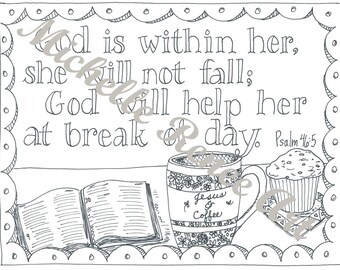 God is within her,
she will not fall;
God will help her
at break of day.
Psalm 46:5
Jesus
&
Coffee